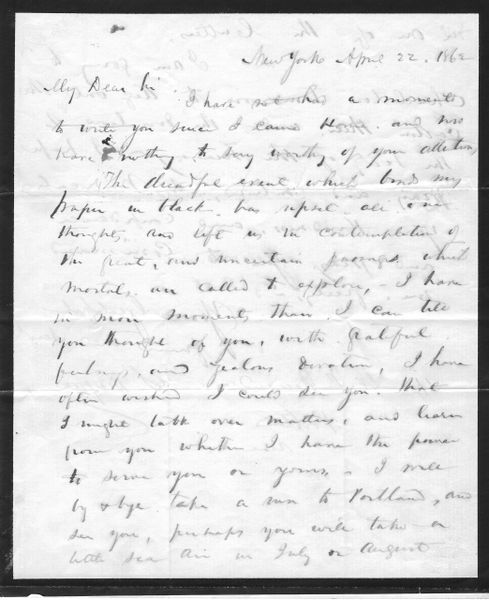 New York April 22. 1862
My Dear Sir.
I have not had a moments
to write you since I came Here. and now
have nothing to say worthy of your attention
The dreadful event, which binds my
paper in black. has upset all our
thoughts and left us in contemplation of
the great, and uncertain passages, which
mortals are called to explore, - I have
in more moments than I can tell
you thought of you, with grateful
feelings, and zealous devotion, I have
often wished I could see you. that
I might talk over matters, and learn
from you whether I have the power
to serve you or yours. - I will
by & bye. take a run to Portland, and
see you, perhaps you will take a
little sea air in July or August